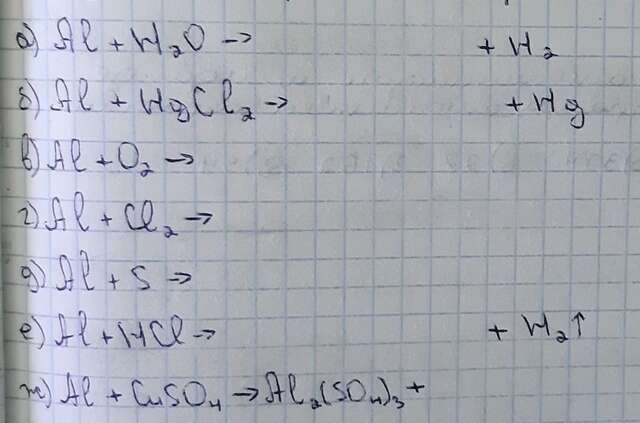 а) Al + H₂O → + H₂
б) Al + HgCl₂ → + Hg
в) Al + O₂ →
г) Al + Cl₂ →
д) Al + S →
е) Al + HCl → + H₂↑
ж) Al + CuSO₄ → Al₂(SO₄)₃ +